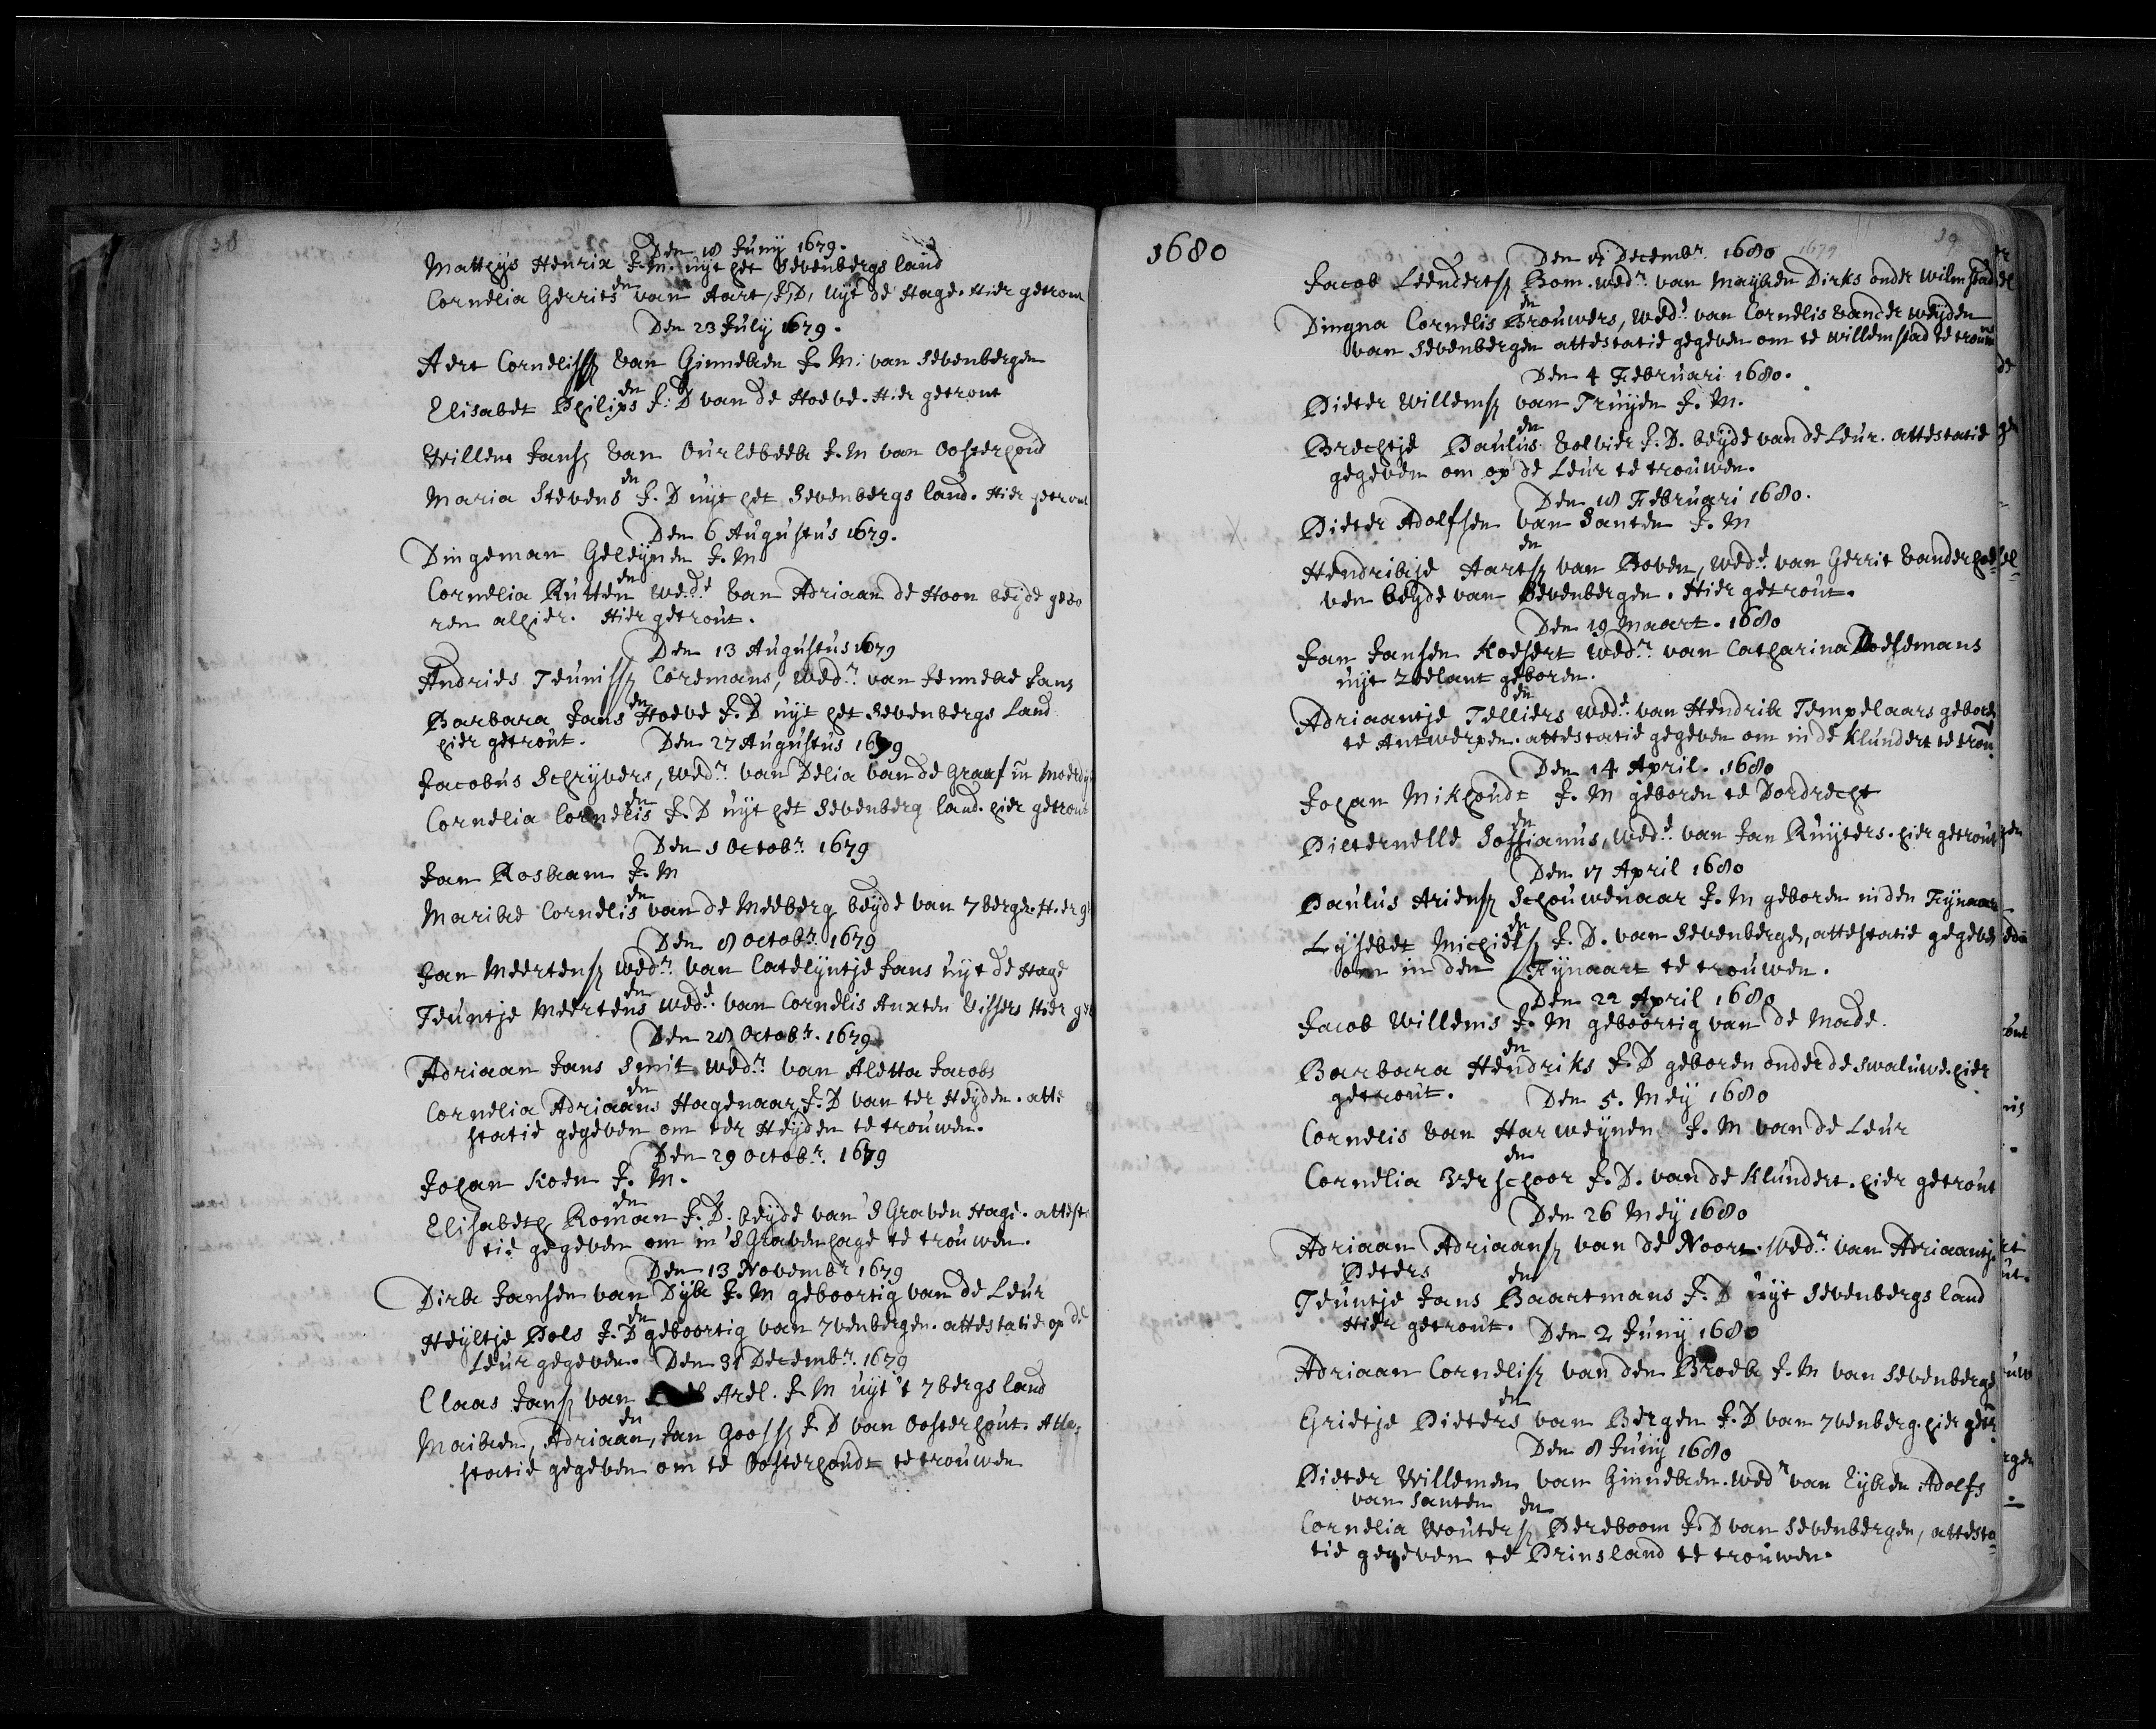 38
Den 18 Junij 1679.
Matthijs Henrix J.M. uijt het Sevenbergs land
en
Cornelia Gerrits van Aart, J.D. uijt de Hage. Hier getrout
Den 23 Julij 1679.
Aert Cornelissz van Ginneken J.M. van Sevenbergen
en
Elisabet Philips J.D van de Hoeve. Hier getrout
Willem Jansz van Ourlebeek J.M van Oosterhoud
en
Maria Stevens J.D uijt het Sevenbergs land. Hier getrout
Den 6 Augustus 1679.
Dingeman Geleijnen J.M
en
Cornelia Rutten Wed.e van Adriaan de Hoon beijde gebo
ren alhier. Hier getrout.
Den 13 Augustus 1679
Andries Teunissz Coremans, Wed.r van Jenneke Jans
en
Barbara Jans Hoeve J.D uijt het Sevenbergs Land
hier getrout. Den 27 Augustus 1679
Jacobus Schrijvers, Wed.r van Delia van de Graaf in Moerdy
en
Cornelia Cornelis J.D uijt het Sevenberg land. hier getrout
Den 1 Octob.r 1679
Jan Roskam J.M
en
Marike Cornelis van de Meeberg beijde van 7berge. Hier ge
Den 8 Octob.r 1679
Jan Meertensz Wed.r van Catelijntje Jans uijt de Hage
en
Teuntje Meertens Wed.e van Cornelis Anxten Vissers Hier get
Den 28 Octob.r 1679
Adriaan Jans Smit Wed.r van Aletta Jacobs
en
Cornelia Adriaans Hagenaar J.D van ter Heijden. atte
statie gegeven om ter Heijden te trouwen.
Den 29 Octob.r 1679
Johan Koen J.M.
en
Elisabeth Roman J.D. beijde van 's Graven Hage. attesta
tie gegeven om in 's Gravenhage te trouwen.
Den 13 Novemb.r 1679
Dirk Jansen van Dijk J.M geboortig van de Leur
en
Heijltje Pols J.D geboortig van 7venbergen. attestatie op de
Leur gegeven. Den 31 Decemb.r 1679
Claas Jansz van Arel. J.M uijt 't 7bergs land
en
Maiken, Adriaan, Jan Goossz J.D van Oosterhout. Atte,
statie gegeven om te Oosterhoudt te trouwen
1680
39
Den 17 Decemb.r 1680 1679
Jacob Leendertsz Bom. wed.r van Mayken Dirks onder Wilmstad
en
Dingna Cornelis Brouwers, Wed.e van Cornelis vander Weijden
van Sevenbergen attestatie gegeven om te Willemstad te trouwn
Den 4 Februari 1680.
Pieter Willemsz van Truijen J.M.
en
Brechtje Paulus Volvier J.D. beijde van de Leur. attestatie
gegeven om op de Leur te trouwen.
Den 18 Februari 1680.
X
Pieter Adolfsen van Santen J.M
en
Hendrikje Aartsz van Boven, Wed.e van Gerrit vanderhoe-
ven beijde van Sevenbergen. Hier getrout.
Den 19 Maart. 1680
Jan Jansen Koesert Wed.r van Catharina Doesemans
uijt Zeelant geboren.
en
Adriaantje Telliers Wed.e van Hendrik Tempelaars geboren
te Antwerpen. attestatie gegeven om in de Klundert te trou.
Den 14 April. 1680
Johan Mikhoudt J.M geboren te Dordrecht
en
Pieternelle Soffianus, Wed.e van Jan Ruijters. hier getrout
Den 17 April 1680
Paulus Ariensz Schouwenaar J.M geboren in den Fijnaar
en
Lijsebet Michielsz J.D. van Sevenberge, attestatie gegeve
om in den Fijnaart te trouwen.
Den 22 April 1680
Jacob Willems J.M geboortig van de Made.
en
Barbara Hendriks J.D geboren onder de Swaluwe. hier
getrout. Den 5. Meij 1680
Cornelis van Harweijnen J.M van de Leur
en
Cornelia Verschoor J.D. van de Klundert. hier getrout
Den 26 Meij 1680
Adriaan Adriaansz van de Noort. Wed.r van Adriaantje
Peters
en
Teuntje Jans Baartmans J.D uijt Sevenbergs land
Hier getrout. Den 2 Junij 1680
Adriaan Cornelisz van den Broek J.M van Sevenberge
en
Grietje Pieters van Bergen J.D van 7venberg. hier getr
Den 8 Junij 1680
Pieter Willemen van Ginneken. Wed.r van Eijken Adolfs
van Santen en
Cornelia Woutersz Pereboom J.D van Sevenbergen, attesta-
tie gegeven te Prinsland te trouwen.